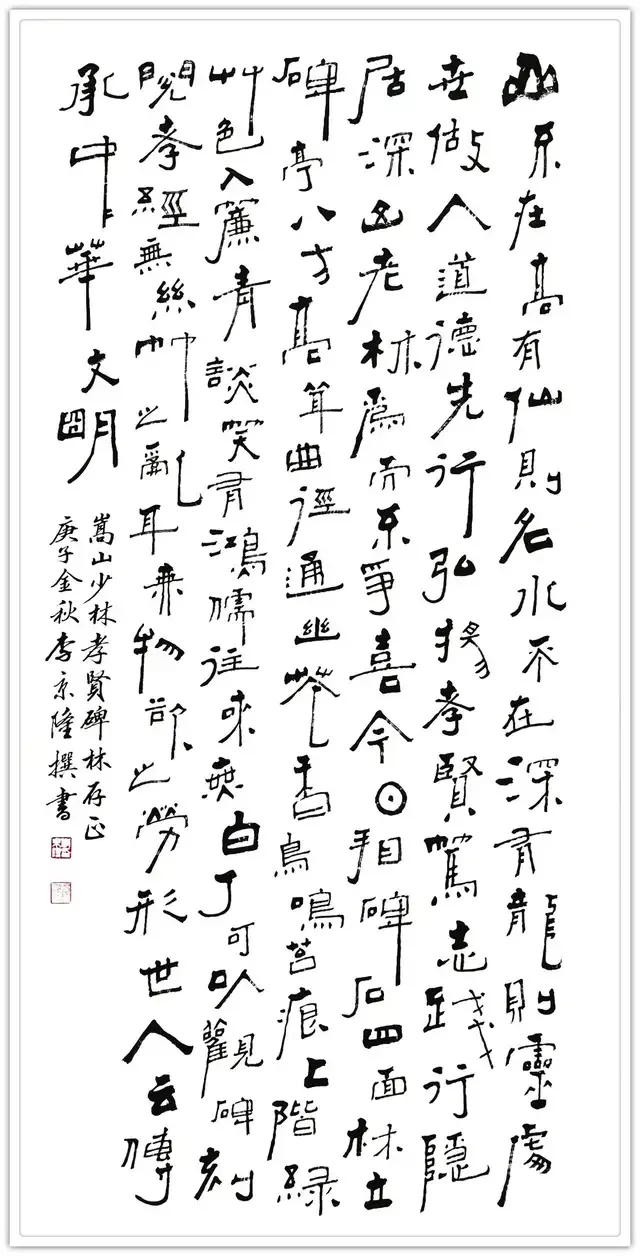 山不在高有仙則名水不在深有龍則靈處
世做人道德先行弘揚孝賢篤志踐行隱
居深山老林為而不爭喜今日相碑石四面林立
碑亭八方高耸曲徑通幽花香鳥鳴苔痕上階緑
艸色入簾青談笑有鴻儒往來無白丁可以觀碑刻
閱孝經無絲竹之亂耳無物欲之勞形世人云傳
承中華文明
嵩山少林孝賢碑林存正
庚子金秋李京隆撰書